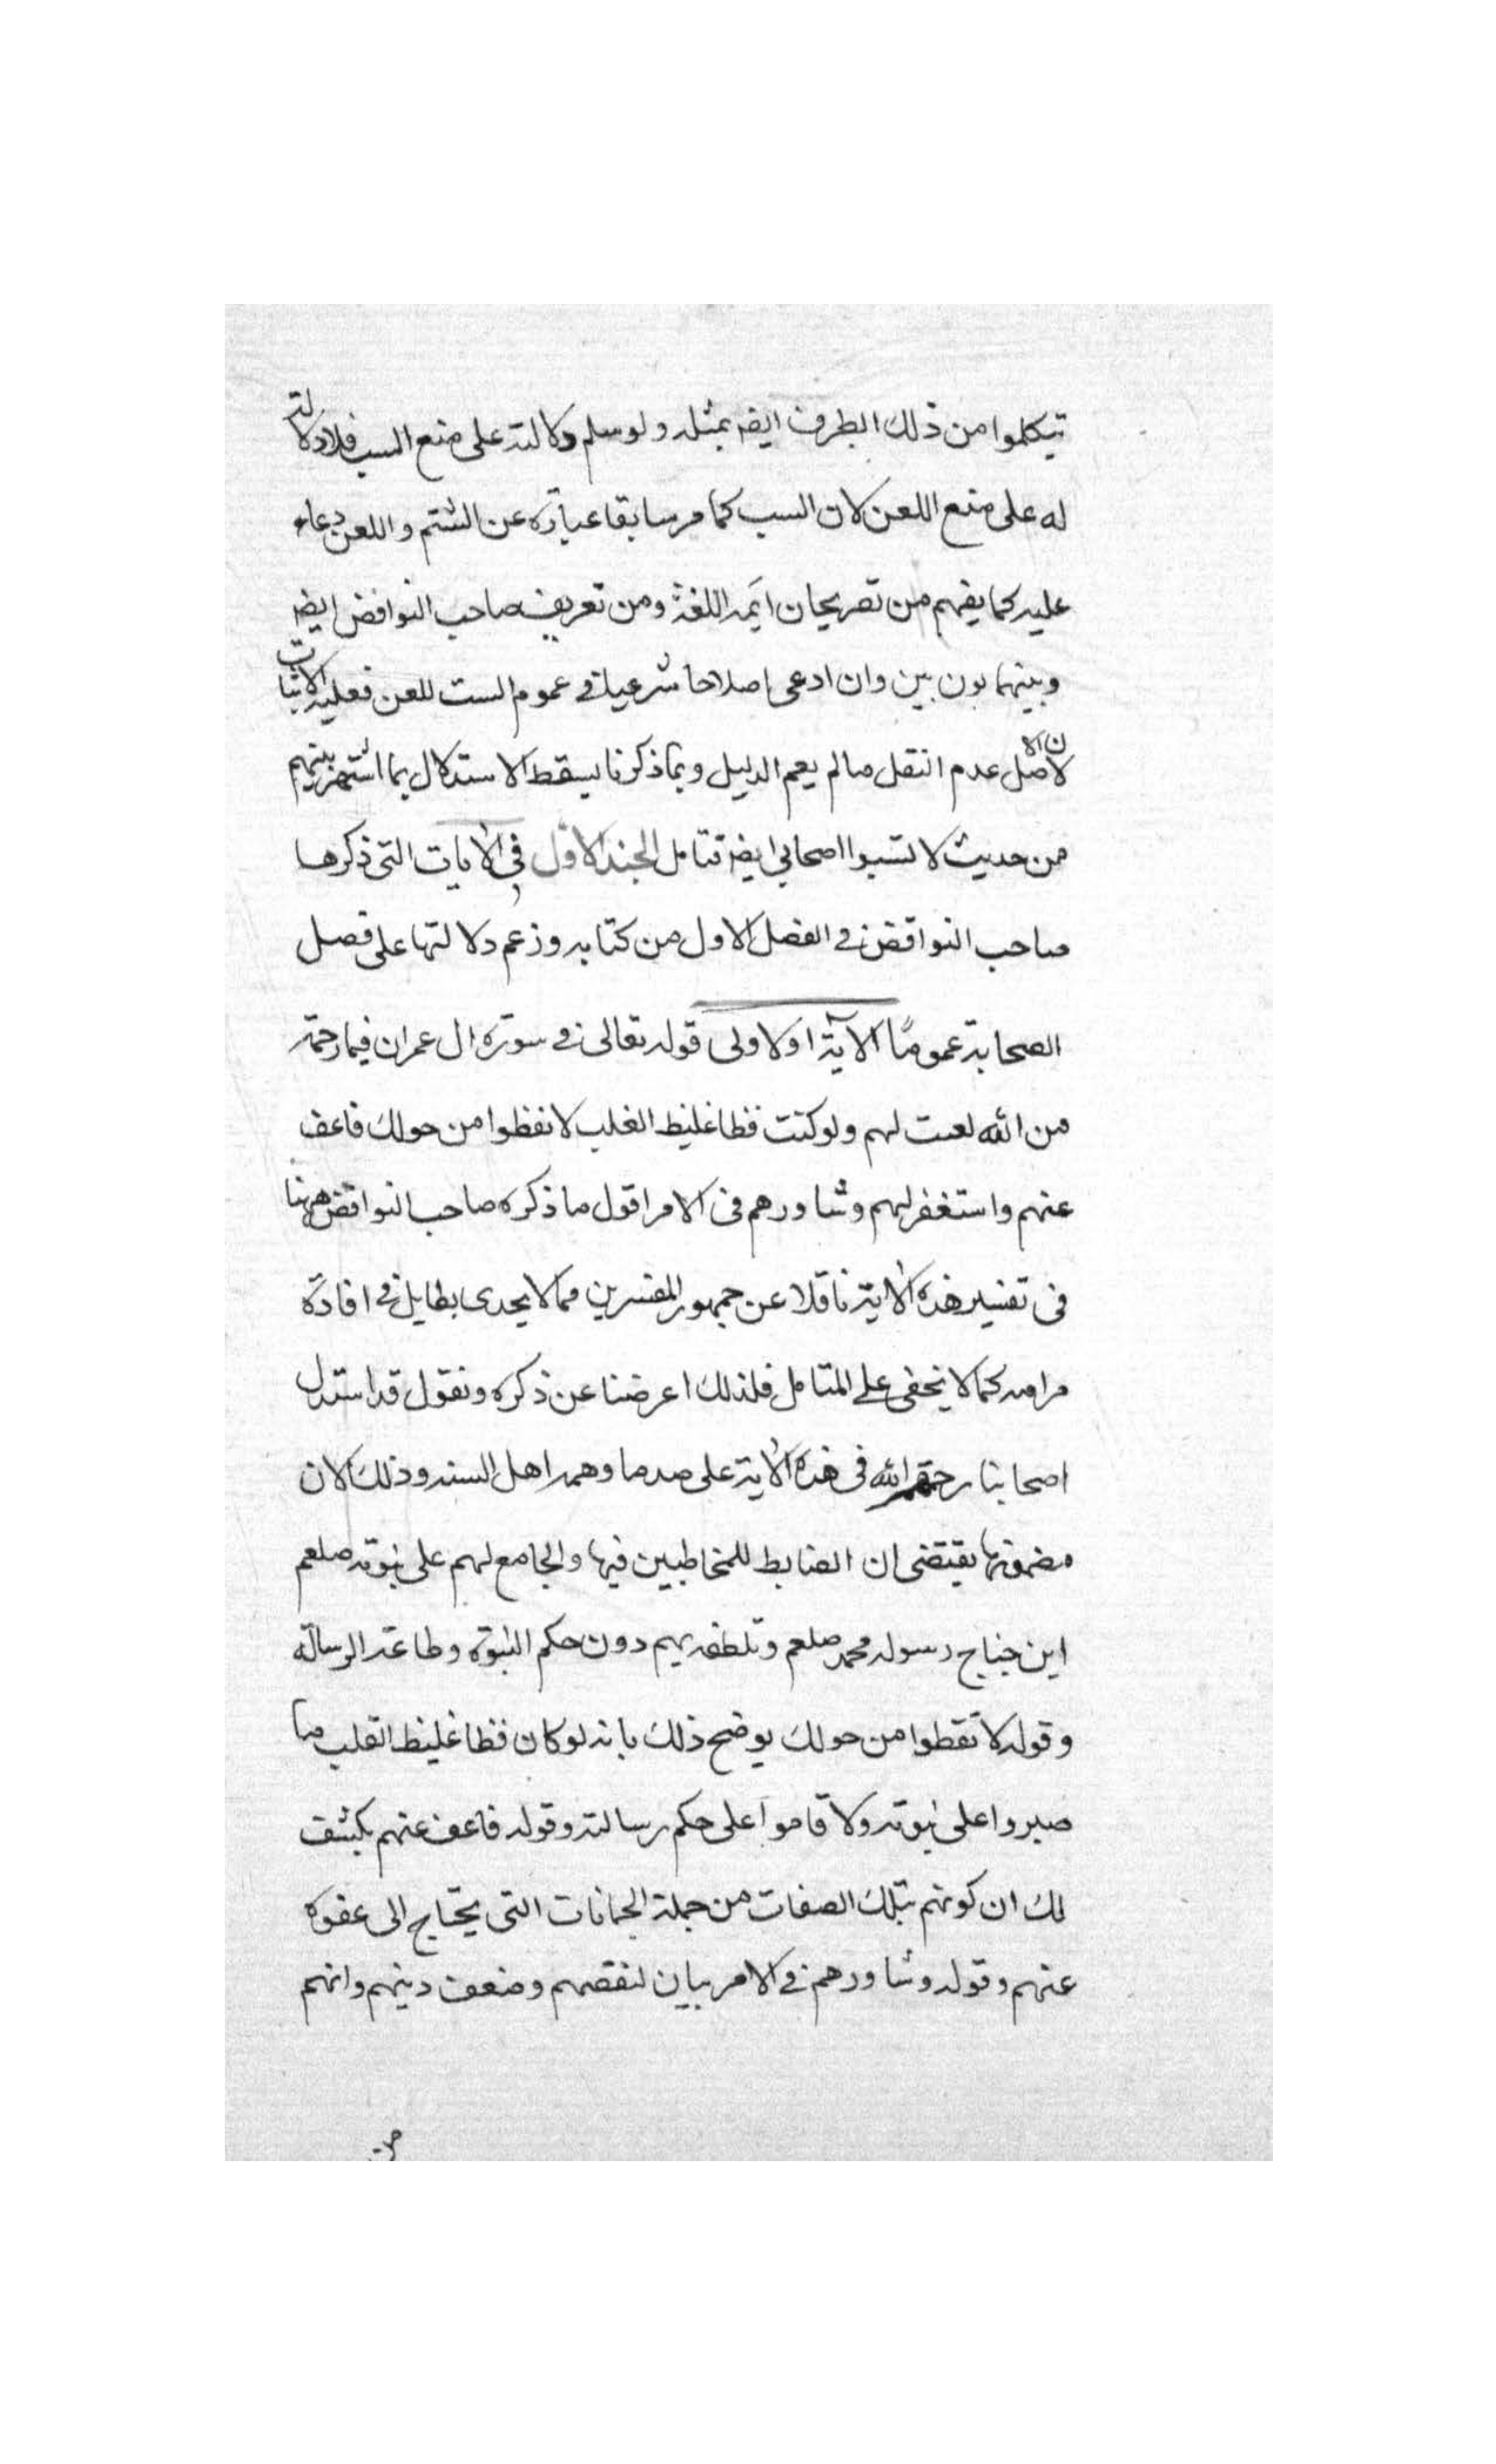 تيكلموا من ذلك الطرف ايضه بمثله ولو سلم دلالته على منع السب فلا دلالته
له على منع اللعن لان السب كما مر سابقا عبارة عن الشتم واللعن دعاء
عليه كما يفهم من تصريحان ايمه اللغة ومن تعريف صاحب النوافض ايضه
وبينهما بون بين وان ادعى اصلاحا شرعيا في عموم الست للعن فعليه الاثبات
لان الاصل عدم النقل مالم يعم الدليل وبما ذكرنا يسقط الاستدلال بما اشتهر بينهم
من حديث لا تسبوا اصحابي ايضه فتامل الجند الاول في الآيات التي ذكرها
صاحب النواقض في الفصل الاول من كتابه وزعم دلالتها على فصل
الصحابة عموما الآية اولاولى قوله تعالى في سورة ال عمران فبما رحمة
من الله لعنت لهم ولو كنت فظا غليظ الغلب لانفظوا من حولك فاعف
عنهم واستغفر لهم وشاورهم في الامر اقول ما ذكره صاحب النواقض ههنا
في تفسير هذه الآية ناقلا عن جمهور المفسرين مما لا يجدى بطايل في افادة
مرامه كما لا يخفى على المتامل فلذلك اعرضنا عن ذكره ونقول قد استدل
اصحابنا رحمهم الله في هذه الآية على صد ما وهمه اهل السنه وذلك لان
مضمونها يقتضى ان الضابط للمخاطبين فيها والجامع لهم على نبوته صلعم
اين جناح رسوله محمد صلعم وتلطفه بهم دون حكم النبوة وطاعة الرسالة
وقوله لا نقطوا من حولك يوضح ذلك بانه لو كان فظا غليظ القلب ما
صبروا على نبوته ولا قاموا على حكم رسالته وقوله فاعف عنهم يكشف
لك ان كونهم بتلك الصفات من جملة الجنانات التي يحتاج الى عفوه
عنهم وقوله وشاورهم في الامر بيان لنقصهم وضعف دينهم وانهم